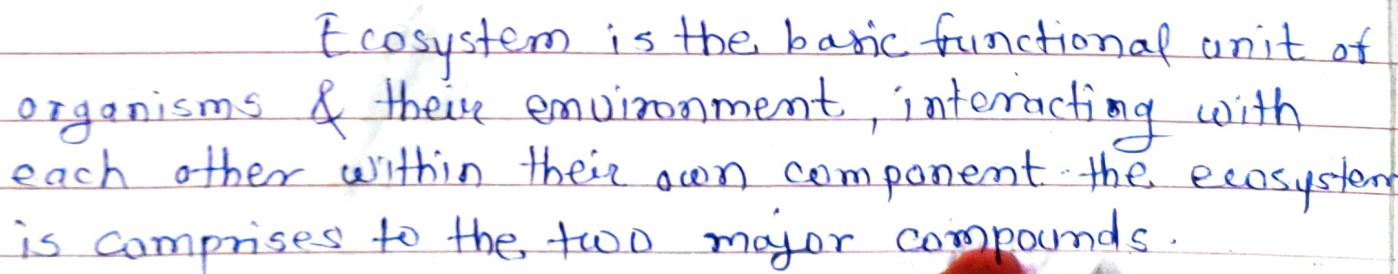 Ecosystem is the basic functional unit of
organisms & their environment, interacting with
each other within their own component. the ecosystem
is comprises to the two major compounds.